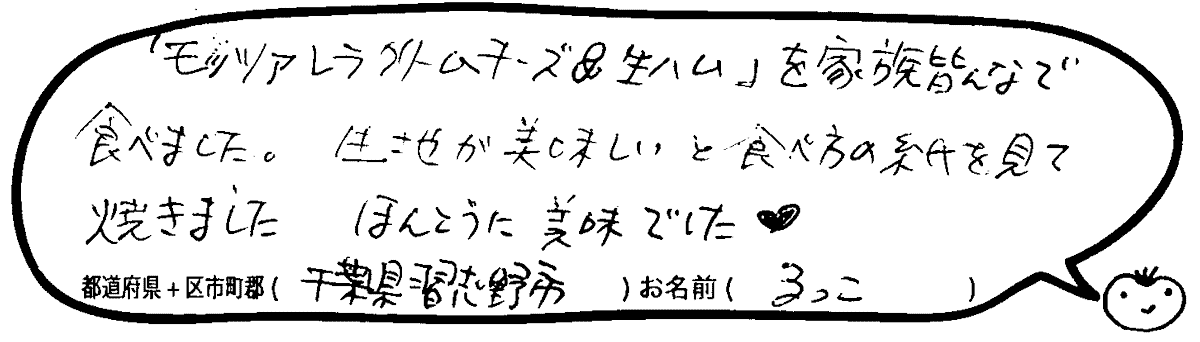 「モッツァレラクリームチーズ&生ハム」を家族皆んなで
食べました。 生地が美味しいと食べ方の条件を見て
焼きました ほんとうに美味でした♥
都道府県+区市町郡( 千葉県習志野市 )お名前( るっこ )